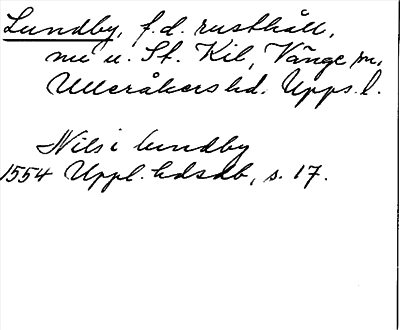 Lundby, f.d. rusthåll,
nu u. St. Kil, Vänge sn,
Ulleråkers hd. Upps. l.
Nils i lundby
1554 Uppl. hdsdb, s. 17.